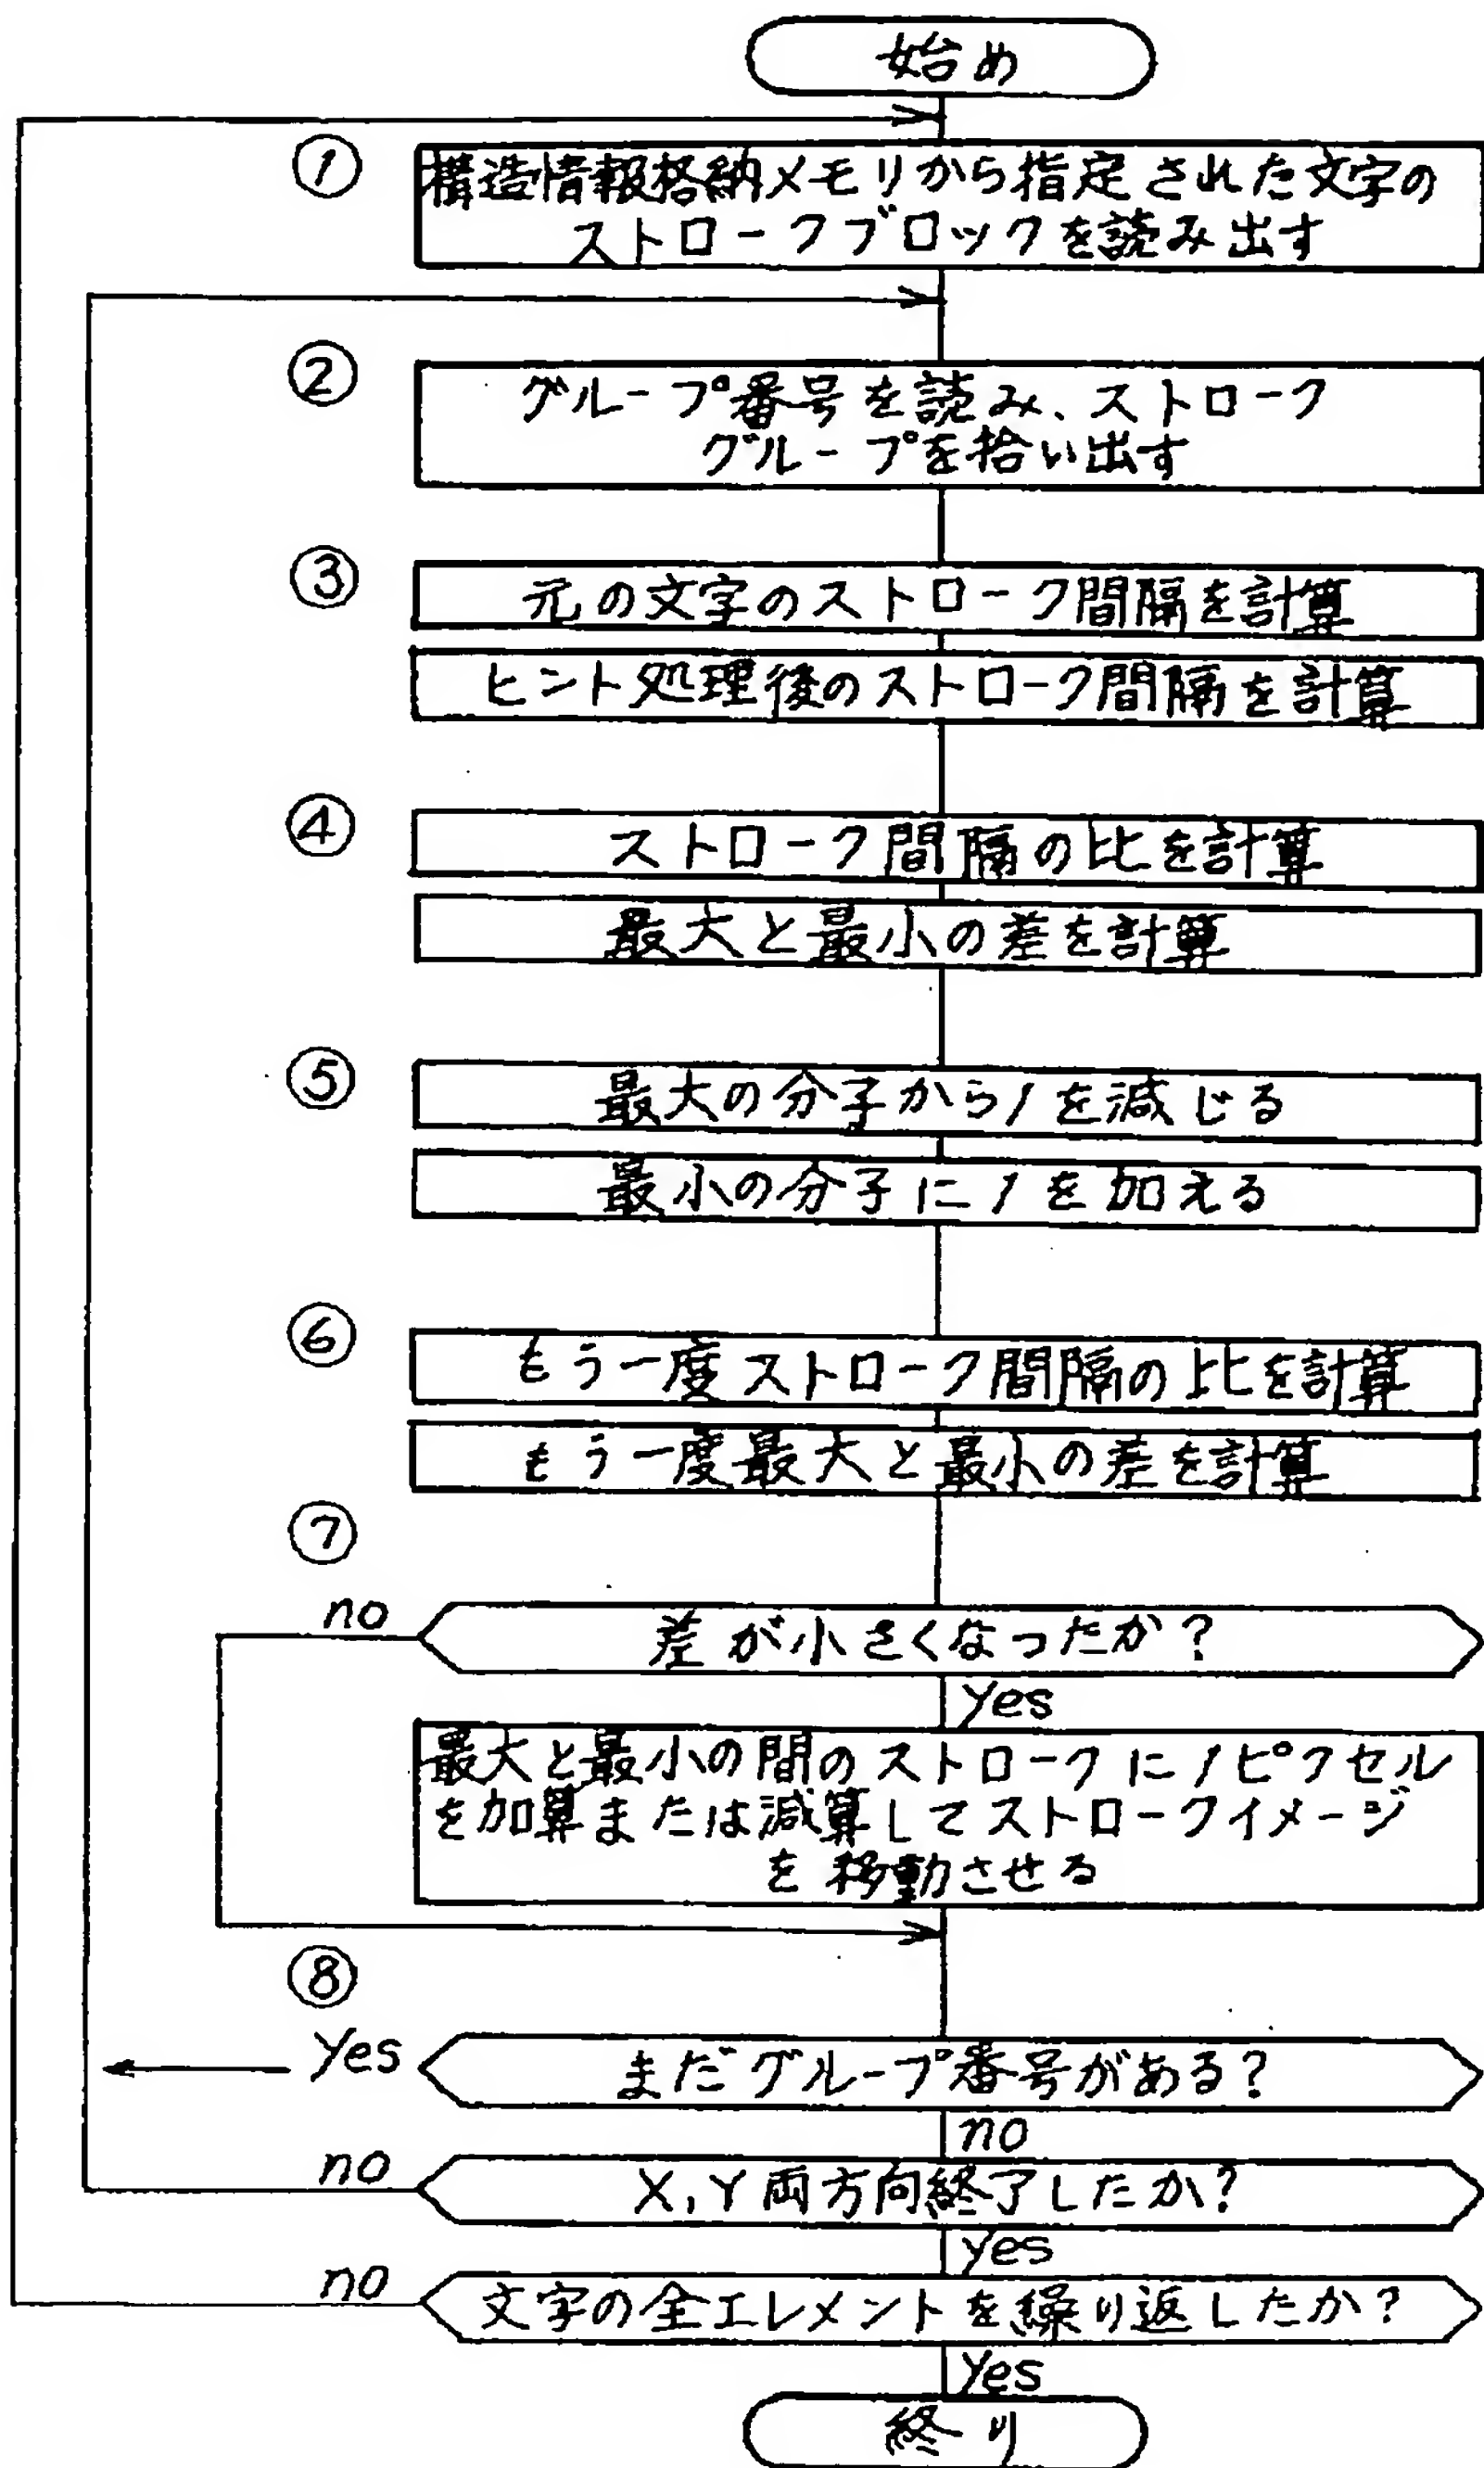 始め
①
構造情報格納メモリから指定された文字の
ストロークブロックを読み出す
②
グループ番号を読み、ストローク
グループを拾い出す
③
元の文字のストローク間隔を計算
ヒント処理後のストローク間隔を計算
④
ストローク間隔の比を計算
最大と最小の差を計算
⑤
最大の分子から1を減じる
最小の分子に1を加える
⑥
もう一度ストローク間隔の比を計算
もう一度最大と最小の差を計算
⑦
no
差が小さくなったか?
Yes
最大と最小の間のストロークに1ピクセル
を加算または減算してストロークイメージ
を移動させる
⑧
Yes
まだグループ番号がある?
no
no
X,Y両方向終了したか?
yes
no
文字の全エレメントを繰り返したか?
Yes
終り